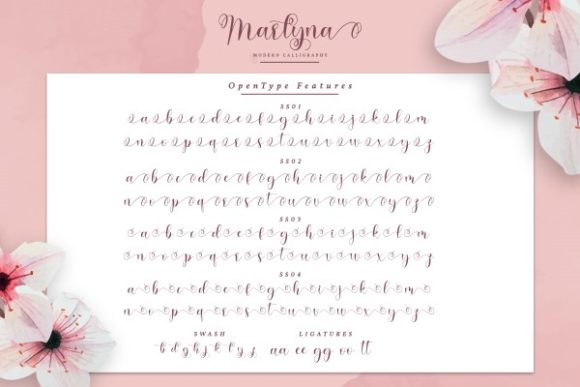 Marlyna
MODERN CALLIGRAPHY
OpenType Features
SS01
a b c d e f g h i j k l m
n o p q r s t u v w x y z
SS02
a b c d e f g h i j k l m
n o p q r s t u v w x y z
SS03
a b c d e f g h i j k l m
n o p q r s t u v w x y z
SS04
a b c d e f g h i j k l m
n o p q r s t u v w x y z
SWASH LIGATURES
b d g h j k l y z aa ee gg oo ll